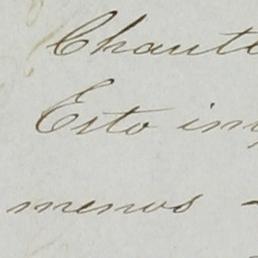 Chaute
Esto im
menos -